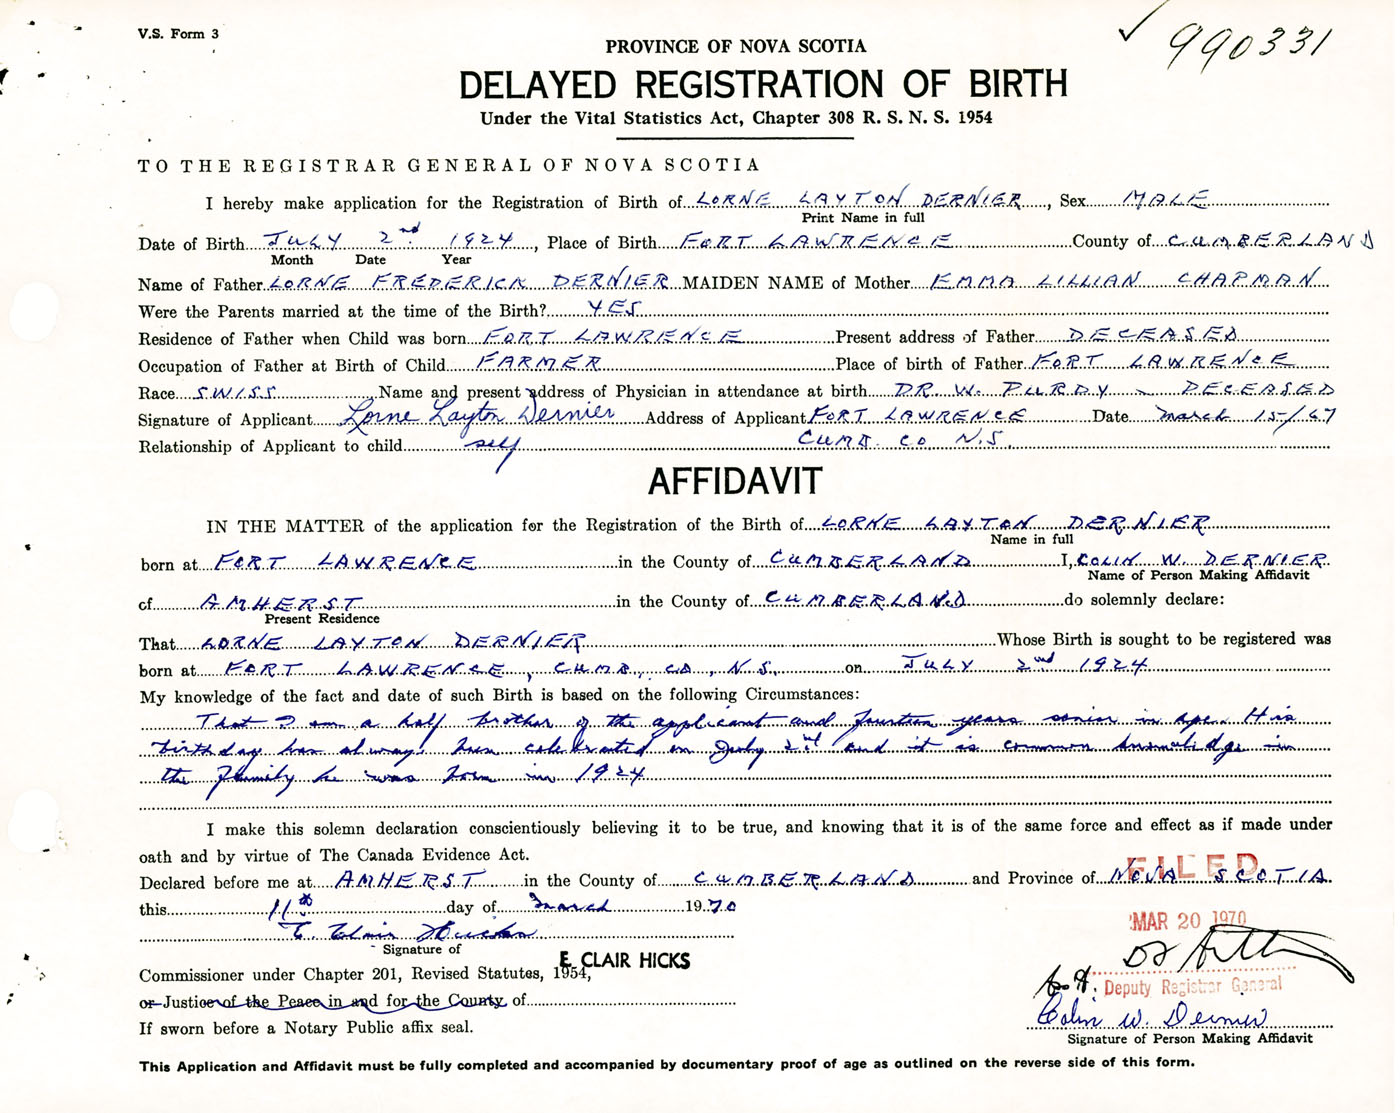 V.S. Form 3
✓ 990331
PROVINCE OF NOVA SCOTIA
DELAYED REGISTRATION OF BIRTH
Under the Vital Statistics Act, Chapter 308 R. S. N. S. 1954
TO THE REGISTRAR GENERAL OF NOVA SCOTIA
I hereby make application for the Registration of Birth of LORNE LAYTON DERNIER, Sex MALE
Print Name in full
Date of Birth JULY 2nd 1924, Place of Birth FORT LAWRENCE County of CUMBERLAND
Month Date Year
Name of Father LORNE FREDERICK DERNIER MAIDEN NAME of Mother EMMA LILLIAN CHAPMAN
Were the Parents married at the time of the Birth? YES
Residence of Father when Child was born FORT LAWRENCE Present address of Father DECEASED
Occupation of Father at Birth of Child FARMER Place of birth of Father FORT LAWRENCE
Race SWISS Name and present address of Physician in attendance at birth DR. W. PURDY - DECEASED
Signature of Applicant Lorne Layton Dernier Address of Applicant FORT LAWRENCE Date March 15/67
Relationship of Applicant to child self CUMB. CO. N.S.
AFFIDAVIT
IN THE MATTER of the application for the Registration of the Birth of LORNE LAYTON DERNIER
Name in full
born at FORT LAWRENCE in the County of CUMBERLAND I, COLIN W. DERNIER
Name of Person Making Affidavit
of AMHERST in the County of CUMBERLAND do solemnly declare:
Present Residence
That LORNE LAYTON DERNIER Whose Birth is sought to be registered was
born at FORT LAWRENCE, CUMB. CO., N.S. on JULY 2nd 1924
My knowledge of the fact and date of such Birth is based on the following Circumstances:
That I am a half brother of the applicant and fourteen years senior in age. His
birthday has always been celebrated on July 2nd and it is common knowledge in
the family he was born in 1924
I make this solemn declaration conscientiously believing it to be true, and knowing that it is of the same force and effect as if made under
oath and by virtue of The Canada Evidence Act.
Declared before me at AMHERST in the County of CUMBERLAND and Province of NOVA SCOTIA
FILED
this 11th day of March 1970
MAR 20 1970
E. Clair Hicks
Signature of
E. CLAIR HICKS
Commissioner under Chapter 201, Revised Statutes, 1954,
Deputy Registrar General
or Justice of the Peace in and for the County of
Colin W. Dernier
If sworn before a Notary Public affix seal.
Signature of Person Making Affidavit
This Application and Affidavit must be fully completed and accompanied by documentary proof of age as outlined on the reverse side of this form.